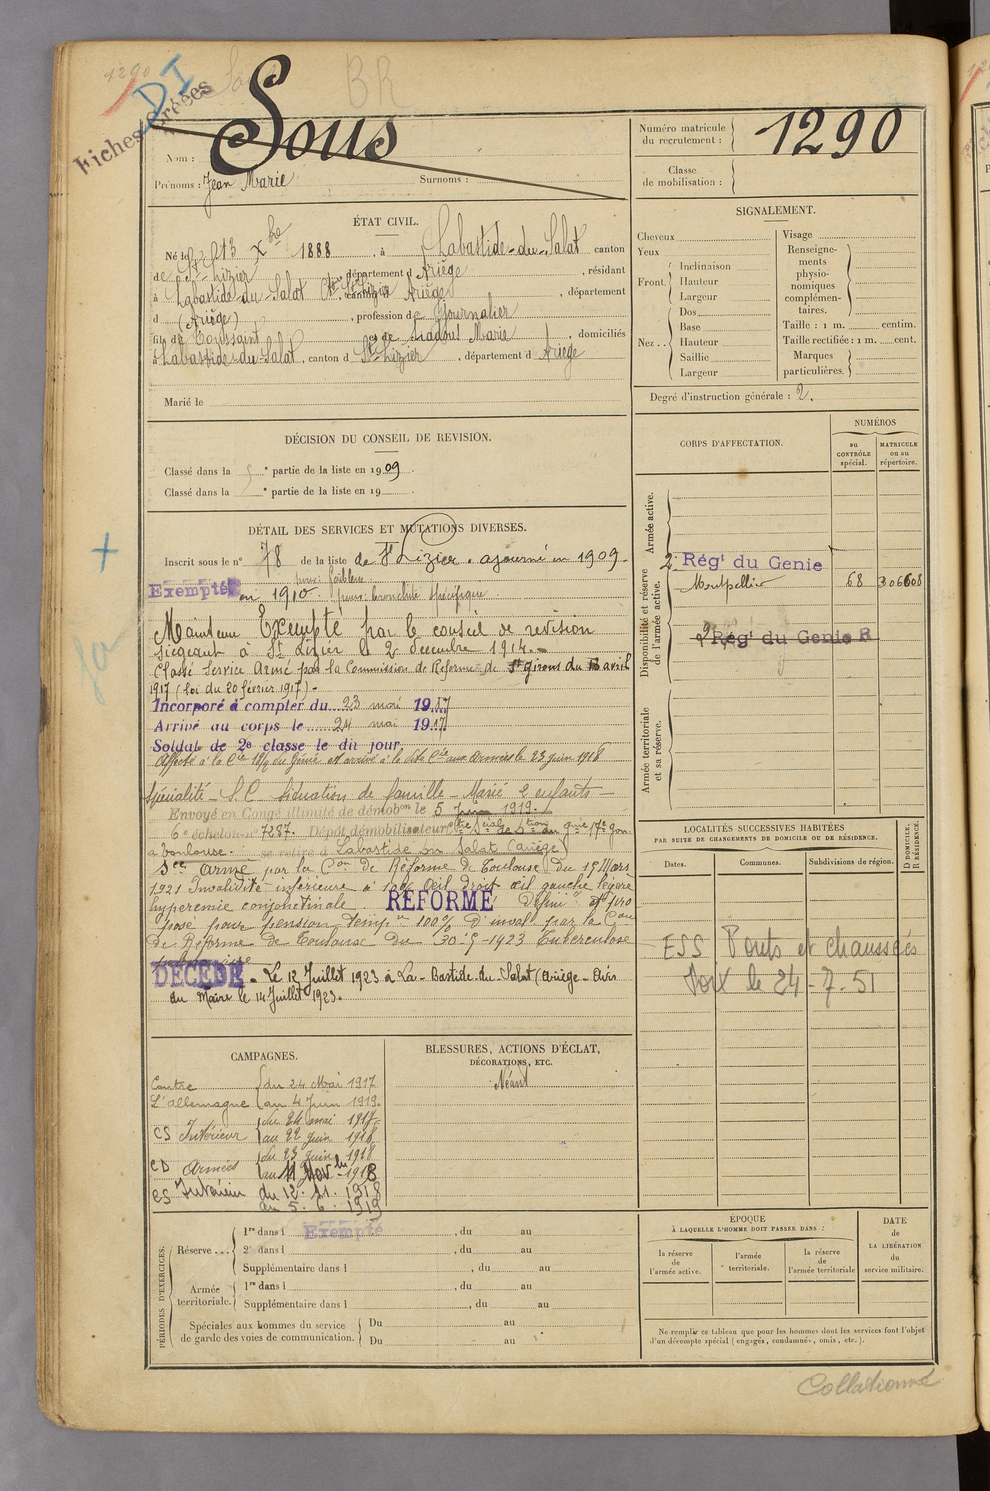 1290
DI
Fiches créées
BR
Sous
Nom :
Prénoms : Jean Marie Surnoms :
Numéro matricule du recrutement : 1290
Classe de mobilisation :
ÉTAT CIVIL.
Né le 13 Xbre 1888, à Labastide-du-Salat canton
de St Lizier, département d Ariège, résidant
à Labastide du Salat Cton St Lizier Ariège, département
d (Ariège), profession de Journalier
fils de Toussaint et de Ladous Marie, domiciliés
à Labastide-du-Salat, canton d St Lizier, département d Ariège
Marié le
DÉCISION DU CONSEIL DE REVISION.
Classé dans la 5e partie de la liste en 1909.
Classé dans la e partie de la liste en 19
DÉTAIL DES SERVICES ET MUTATIONS DIVERSES.
Inscrit sous le n° 78 de la liste de St Lizier. ajourné en 1909.
pour faiblesse
Exempté en 1910. pour bronchite spécifique
Maintenu Exempté par le conseil de revision
siégeant à St Lizier le 2 decembre 1914.
Classé Service Armé par la Commission de Réforme de St girons du 13 avril
1917 (loi du 20 février 1917).
Incorporé à compter du 23 mai 1917
Arrivé au corps le 24 mai 1917
Soldat de 2e classe le dit jour.
Affecté à la Cie 19/6 du Génie et arrivé à la dite Cie aux Armées le 23 juin 1918
Spécialité - S.C Situation de famille - Marié 2 enfants -
Envoyé en Congé illimité de démobon le 5 Juin 1919.
6e échelon n° 7287. Dépôt démobilisateur du 17e
à Toulouse. se retire à Labastide du Salat (Ariège)
Sce Armé par la Con de Réforme de Toulouse du 15 Mars
1921 Invalidité inférieure à 10% œil droit œil gauche légère
hyperemie conjonctivale. RÉFORMÉ Défini. et pro
posé pour pension temp. 100% d'inval. par la Con
de Réforme de Toulouse du 30-5-1923 Tuberculose
pulmonaire
DÉCÉDÉ. Le 12 Juillet 1923 à La-Bastide-du-Salat (Ariège - Avis
du Maire le 14 Juillet 1923.
CAMPAGNES.
Contre
L'allemagne
du 24 Mai 1917
au 4 Juin 1919.
CS Intérieur
du 24 mai 1917
au 22 juin 1918
CD Armées
du 23 juin 1918
au 11 Novbre 1918
CS Intérieur
du 12. 11. 1918
au 5. 6. 1919
BLESSURES, ACTIONS D'ÉCLAT,
DÉCORATIONS, ETC.
Néant
PÉRIODES D'EXERCICES.
Réserve...
1re dans l Exempté, du au
2e dans l, du au
Supplémentaire dans l, du au
Armée territoriale.
1re dans l, du au
Supplémentaire dans l, du au
Spéciales aux hommes du service de garde des voies de communication.
Du au
Du au
SIGNALEMENT.
Cheveux
Yeux
Front.
Inclinaison
Hauteur
Largeur
Nez..
Dos
Base
Hauteur
Saillie
Largeur
Visage
Renseignements physionomiques complémentaires.
Taille : 1 m. centim.
Taille rectifiée : 1 m. cent.
Marques particulières.
Degré d'instruction générale : 2.
CORPS D'AFFECTATION.
NUMÉROS
au CONTRÔLE spécial.
MATRICULE ou au répertoire.
Armée active.
Disponibilité et réserve de l'armée active.
2e Régt du Génie
Montpellier 68
2e Régt du Génie R
Armée territoriale et sa réserve.
LOCALITÉS SUCCESSIVES HABITÉES
PAR SUITE DE CHANGEMENTS DE DOMICILE OU DE RÉSIDENCE.
Dates.
Communes.
Subdivisions de région.
D DOMICILE. R RÉSIDENCE.
ESS Ponts et chaussées
Foix le 24-7-51
ÉPOQUE
À LAQUELLE L'HOMME DOIT PASSER DANS :
la réserve de l'armée active.
l'armée territoriale.
la réserve de l'armée territoriale
DATE de LA LIBÉRATION du service militaire.
Ne remplir ce tableau que pour les hommes dont les services font l'objet
d'un décompte spécial (engagés, condamnés, omis, etc.).
Collationné